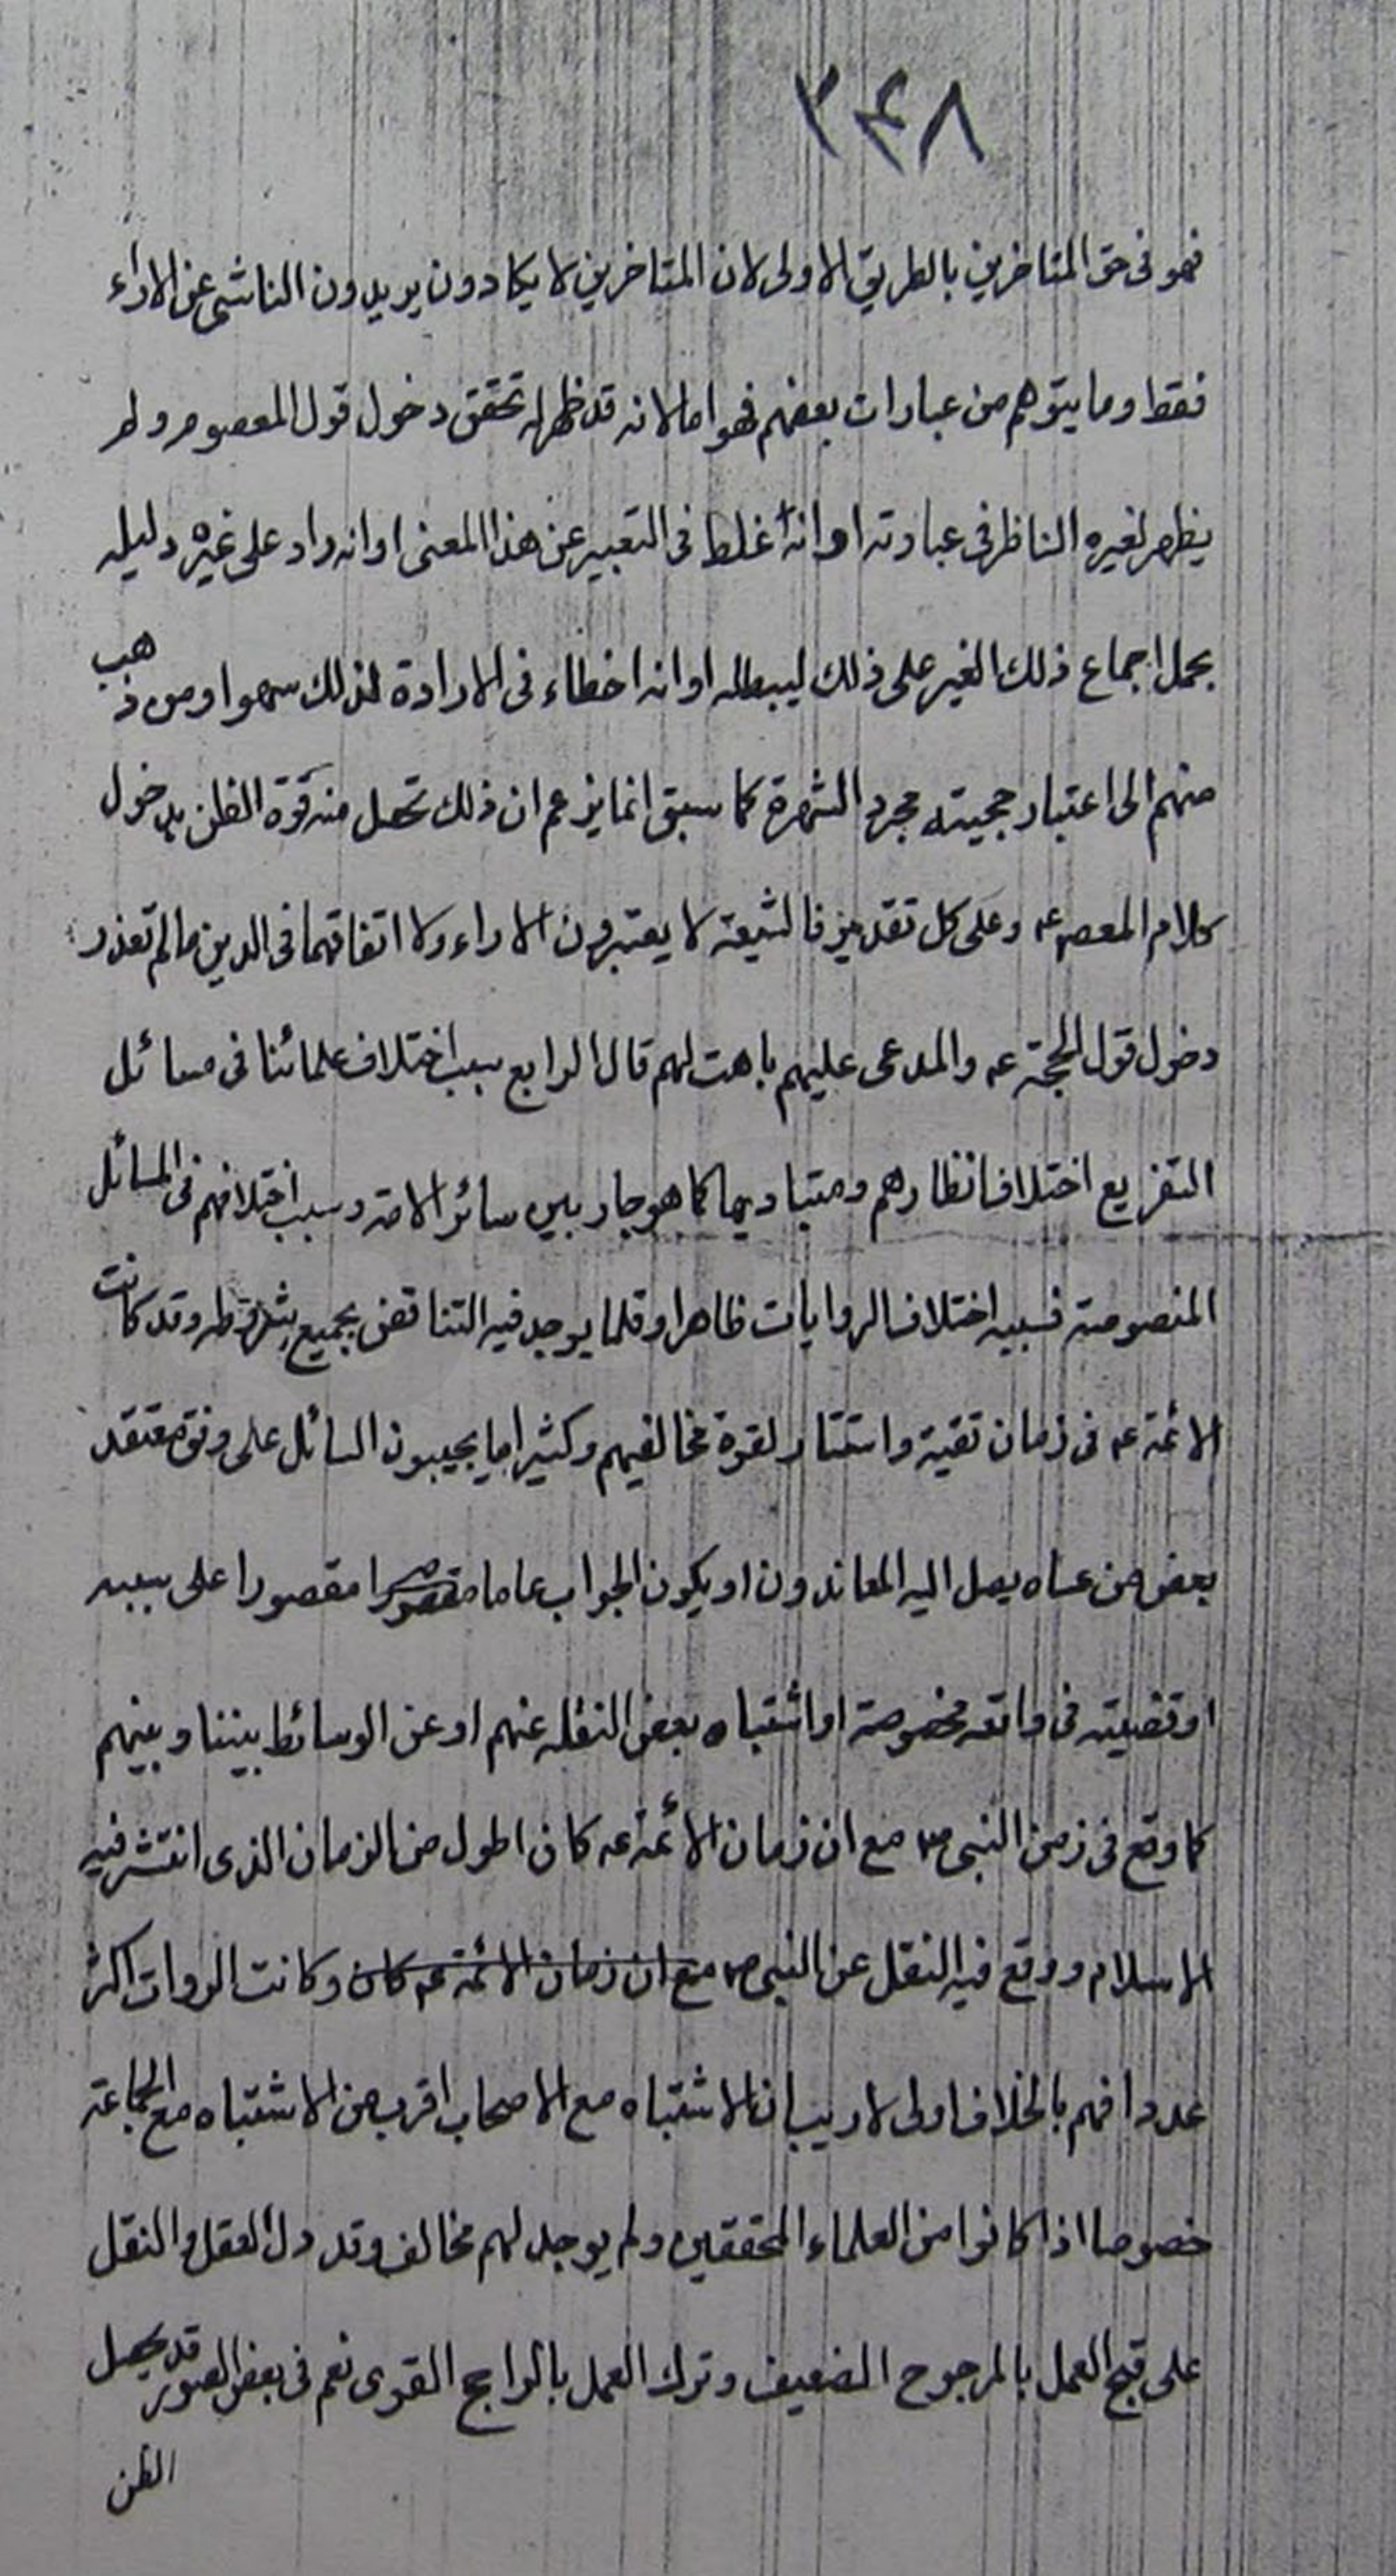 ٣٤٨
فهو فى حق المتاخرين بالطريق الاولى لان المتاخرين لا يكادون يريدون الناشى عن الاراء
فقط وما يتوهم من عبارات بعضهم فهو اما لانه قد ظهر له تحقق دخول قول المعصوم ولم
يظهر لغيره الناظر فى عبارته او انه غلط فى التعبير عن هذا المعنى او انه راد على غيره دليله
بحمل اجماع ذلك الغير على ذلك ليبطله او انه اخطاء فى الارادة لذلك سهوا ومن ذهب
منهم الى اعتبار حجيته مجرد الشهرة كما سبق انما يزعم ان ذلك تحصل منه قوة الظن بدخول
كلام المعصوم عه وعلى كل تقدير فالشيعة لا يعتبرون الاراء ولا اتفاقهما فى الدين ما لم تعذر
دخول قول الحجة عه والمدعى عليهم باهت لهم قال الرابع سبب اختلاف علمائنا فى مسائل
التفريع اختلاف انظارهم ومتباديها كما هو جار بين سائر الامة وسبب اختلافهم فى المسائل
المنصوصة فسببه اختلاف الروايات ظاهرا وقلما يوجد فيه التناقض بجميع شروطه وقد كانت
الائمة عه فى زمان تقية واستتار لقوة مخالفيهم وكثيرا ما يجيبون السائل على وفق معتقد
بعض من عساه يصل اليه المعاندون او يكون الجواب عاما مقصورا مقصورا على سببه
او قضيته فى واقعه مخصوصة او اشتباه بعض النقله عنهم او عن الوسائط بيننا وبينهم
كما وقع فى زمن النبى ص مع ان زمان الأئمة عه كان اطول من الزمان الذى انتشر فيه
الاسلام ووقع فيه النقل عن النبى ص مع ان زمان الائمة عه كان وكانت الروات اكثر
عددا فهم بالخلاف اولى لا ريب ان الاشتباه مع الاصحاب اقرب من الاشتباه مع الجماعة
خصوصا اذا كانوا من العلماء المحققين ولم يوجد لهم مخالف وقد دل العقل والنقل
على قبح العمل بالمرجوح الضعيف وترك العمل بالراجح القوى نعم فى بعض الصور قد يحصل
الظن